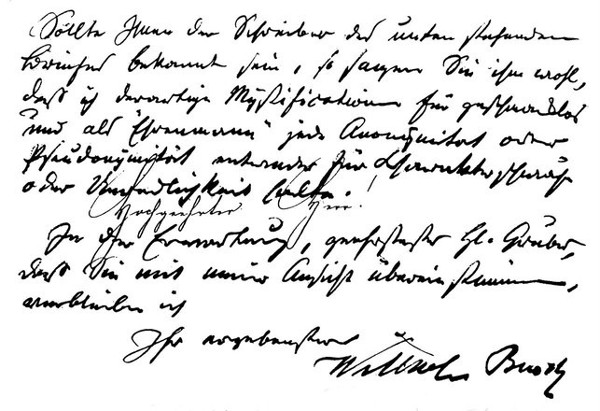 Sollte Ihnen der Schreiber des unten stehenden
Briefes bekannt sein, so sagen Sie ihm wohl,
daß ich derartige Mystificationen für geschmacklos
und als "Ehrenmann" jede Anonymität oder
Pseudonymität entweder für Charakterschwäche
oder Unredlichkeit halte.!
Hochgeehrter Herr!
In der Erwartung, geehrtester H. Gruber,
daß Sie mit meiner Ansicht übereinstimmen,
verbleibe ich
Ihr ergebenster
Wilhelm Busch